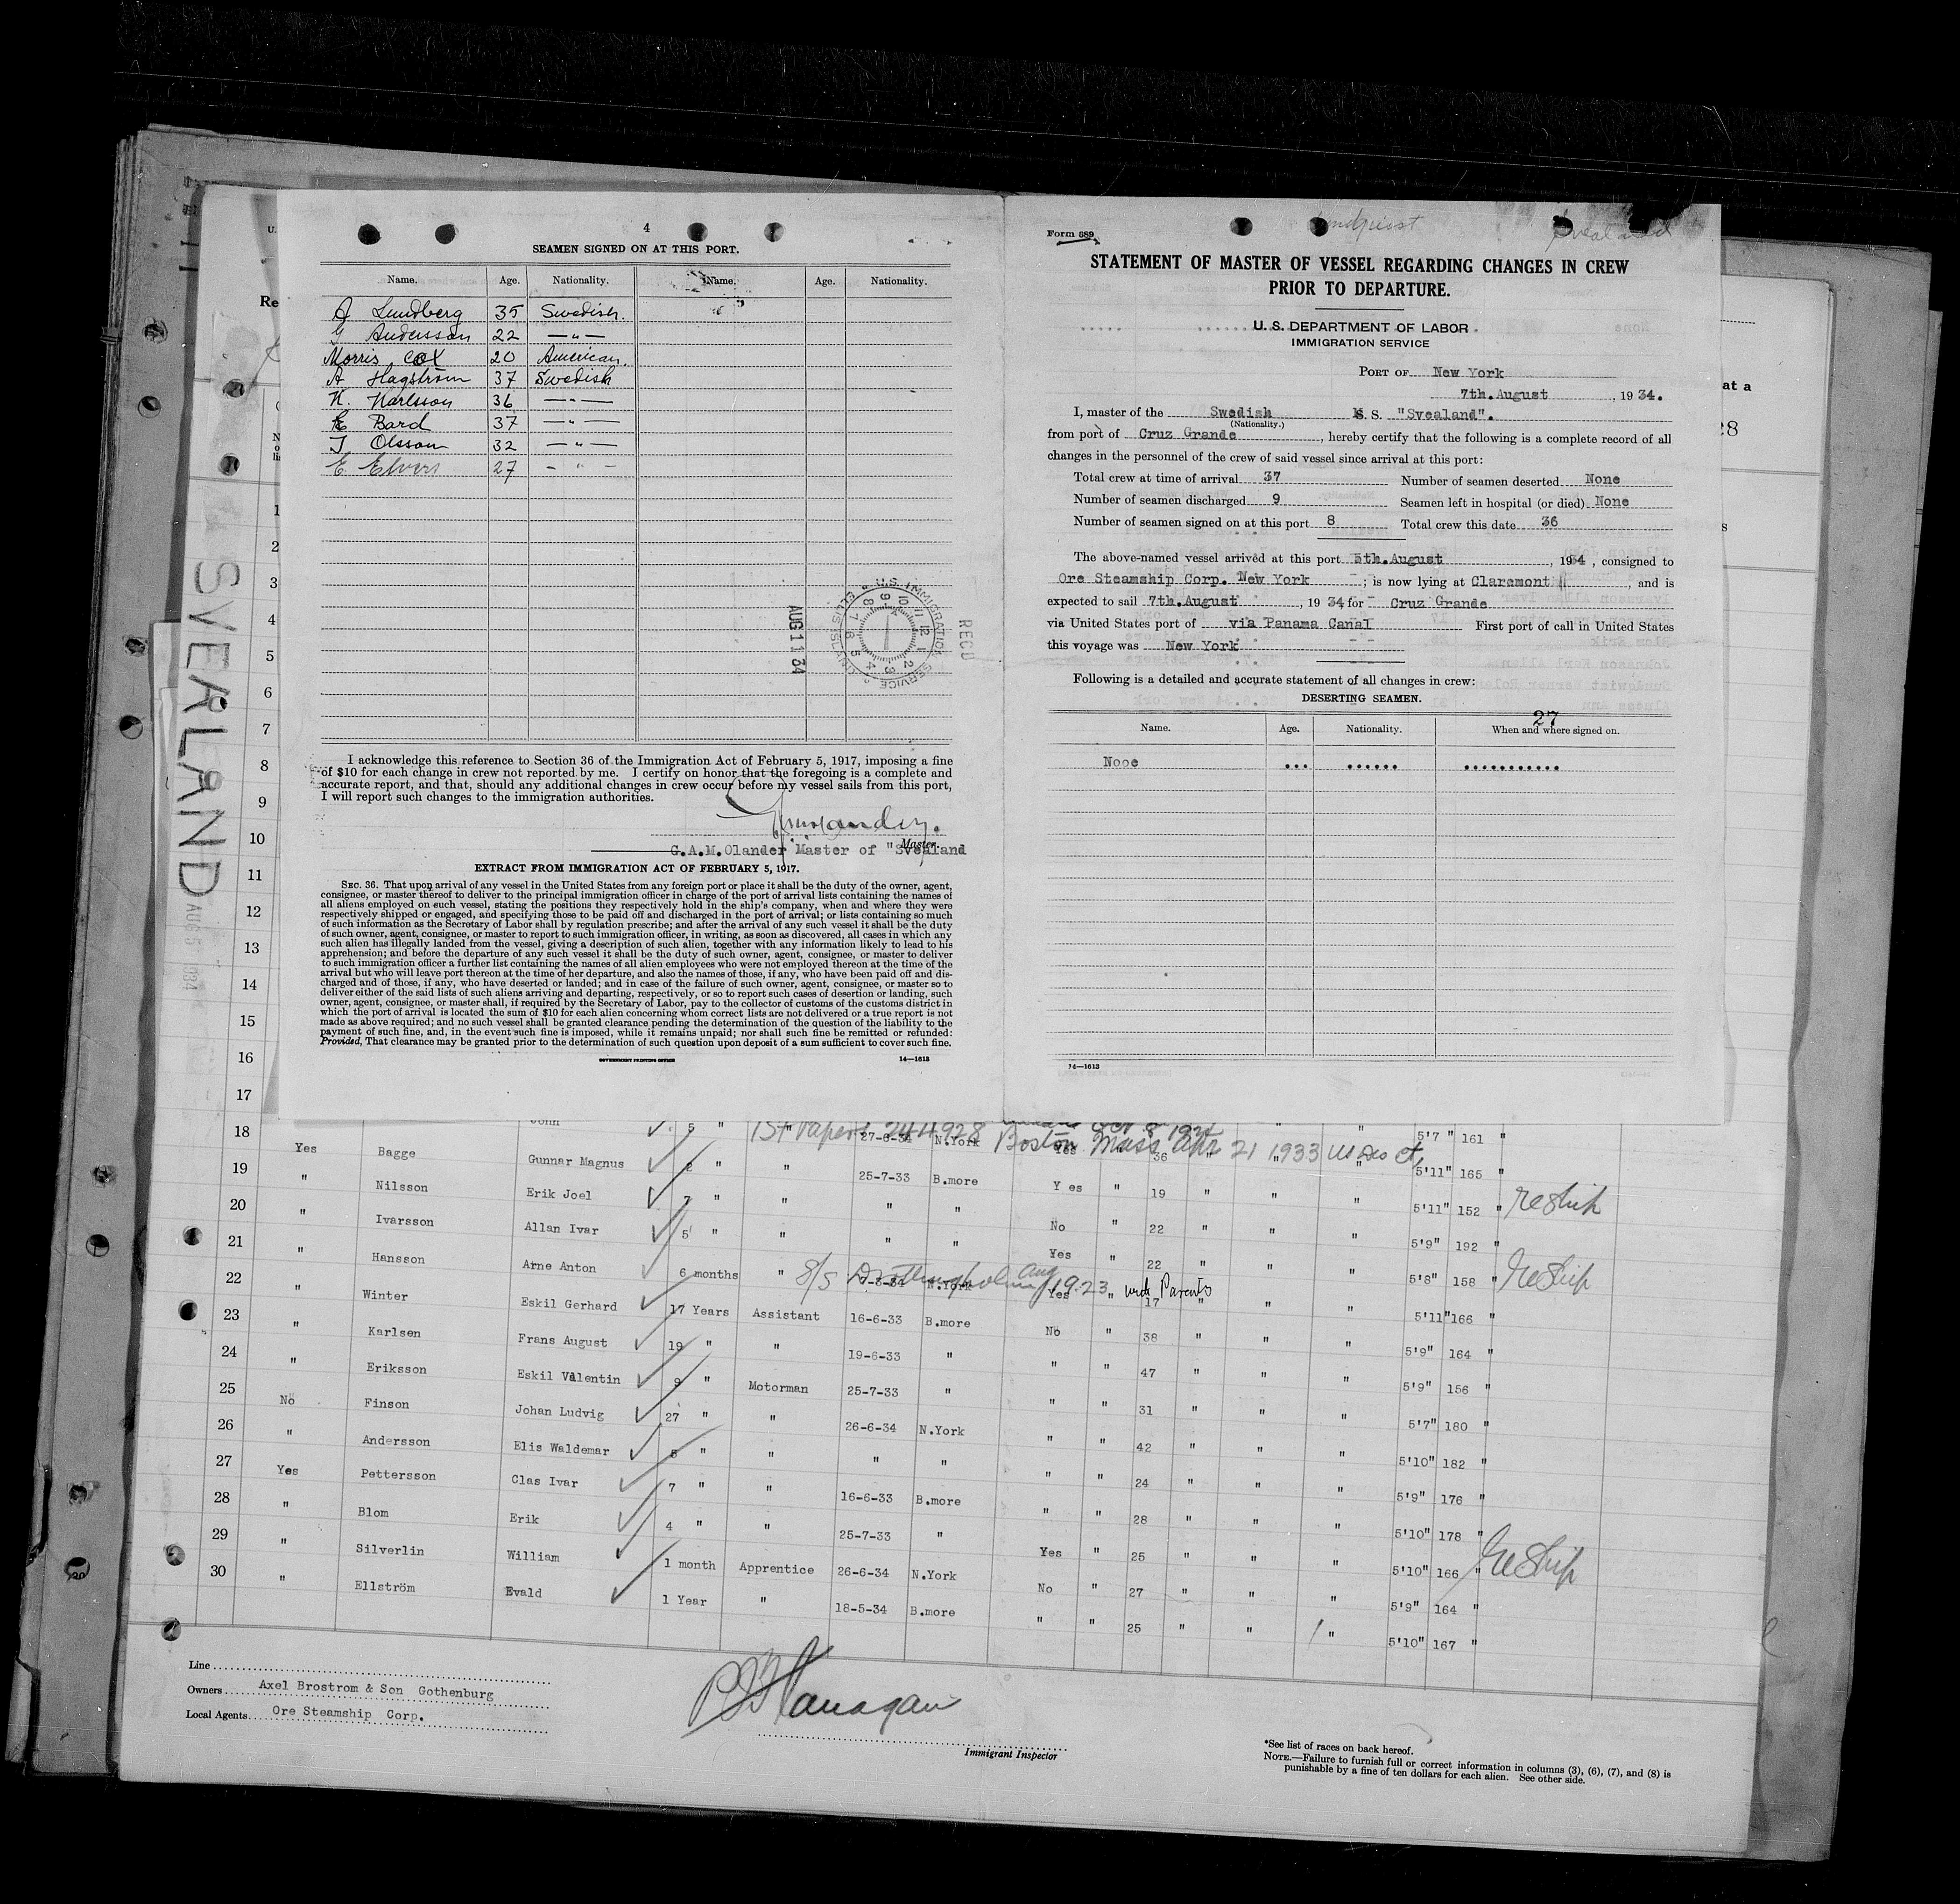 4
SEAMEN SIGNED ON AT THIS PORT.
Name. Age. Nationality. Name. Age. Nationality.
A Lundberg 35 Swedish.
G Andersson 22 — " —
Morris Cox 20 American.
A Hagström 37 Swedish
K. Karlsson 36 — " —
E Bard 37 — " —
T Olsson 32 — " —
E Elvers 27 - " -
AUG 11 34
U.S. IMMIGRATION SERVICE
ELLIS ISLAND
RECD
I acknowledge this reference to Section 36 of the Immigration Act of February 5, 1917, imposing a fine
of $10 for each change in crew not reported by me. I certify on honor that the foregoing is a complete and
accurate report, and that, should any additional changes in crew occur before my vessel sails from this port,
I will report such changes to the immigration authorities.
G.A.M.Olander Master of "Svealand
Master.
EXTRACT FROM IMMIGRATION ACT OF FEBRUARY 5, 1917.
SEC. 36. That upon arrival of any vessel in the United States from any foreign port or place it shall be the duty of the owner, agent,
consignee, or master thereof to deliver to the principal immigration officer in charge of the port of arrival lists containing the names of
all aliens employed on such vessel, stating the positions they respectively hold in the ship's company, when and where they were
respectively shipped or engaged, and specifying those to be paid off and discharged in the port of arrival; or lists containing so much
of such information as the Secretary of Labor shall by regulation prescribe; and after the arrival of any such vessel it shall be the duty
of such owner, agent, consignee, or master to report to such immigration officer, in writing, as soon as discovered, all cases in which any
such alien has illegally landed from the vessel, giving a description of such alien, together with any information likely to lead to his
apprehension; and before the departure of any such vessel it shall be the duty of such owner, agent, consignee, or master to deliver
to such immigration officer a further list containing the names of all alien employees who were not employed thereon at the time of the
arrival but who will leave port thereon at the time of her departure, and also the names of those, if any, who have been paid off and dis-
charged and of those, if any, who have deserted or landed; and in case of the failure of such owner, agent, consignee, or master so to
deliver either of the said lists of such aliens arriving and departing, respectively, or so to report such cases of desertion or landing, such
owner, agent, consignee, or master shall, if required by the Secretary of Labor, pay to the collector of customs of the customs district in
which the port of arrival is located the sum of $10 for each alien concerning whom correct lists are not delivered or a true report is not
made as above required; and no such vessel shall be granted clearance pending the determination of the question of the liability to the
payment of such fine, and, in the event such fine is imposed, while it remains unpaid; nor shall such fine be remitted or refunded:
Provided, That clearance may be granted prior to the determination of such question upon deposit of a sum sufficient to cover such fine.
GOVERNMENT PRINTING OFFICE 14—1613
Form 689
Svealand
STATEMENT OF MASTER OF VESSEL REGARDING CHANGES IN CREW
PRIOR TO DEPARTURE.
U. S. DEPARTMENT OF LABOR
IMMIGRATION SERVICE
PORT OF New York
7th.August , 1934.
I, master of the Swedish S. S. "Svealand".
(Nationality.)
from port of Cruz Grande , hereby certify that the following is a complete record of all
changes in the personnel of the crew of said vessel since arrival at this port:
Total crew at time of arrival 37 Number of seamen deserted None
Number of seamen discharged 9 Seamen left in hospital (or died) None
Number of seamen signed on at this port 8 Total crew this date 36
The above-named vessel arrived at this port 5th.August , 1934 , consigned to
Ore Steamship Corp. New York ; is now lying at Claremont , and is
expected to sail 7th.August , 1934 for Cruz Grande
via United States port of via Panama Canal First port of call in United States
this voyage was New York
Following is a detailed and accurate statement of all changes in crew:
DESERTING SEAMEN.
27
Name. Age. Nationality. When and where signed on.
None ... ...... ...........
14—1613
at a
SVERLAND
AUG 5 1934
1
2
3
4
5
6
7
8
9
10
11
12
13
14
15
16
17
18 John 5 " " 27-6-34 N.York " " 5'7 161 "
1st Papers 244928
Boston Mass Apr 21 1933 US Dis Ct,
19 Yes Bagge Gunnar Magnus " " 25-7-33 B.more Yes " 36 " " " 5'11" 165 "
20 " Nilsson Erik Joel 7 " " " " Yes " 19 " " " 5'11" 152 " reship
21 " Ivarsson Allan Ivar 5 " " " " No " 22 " " " 5'9" 192 "
22 " Hansson Arne Anton 6 months " N.York Yes " 22 " " " 5'8" 158 " Reship
S/S Drottningholm Aug 1923 with Parents
23 " Winter Eskil Gerhard 17 Years Assistant 16-6-33 B.more Yes " 17 " " " 5'11" 166 "
24 " Karlsen Frans August 19 " " 19-6-33 " No " 38 " " " 5'9" 164 "
25 " Eriksson Eskil Valentin 9 " Motorman 25-7-33 " " " 47 " " " 5'9" 156 "
26 No Finson Johan Ludvig 27 " " 26-6-34 N.York " " 31 " " " 5'7" 180 "
27 " Andersson Elis Waldemar " " " " " " 42 " " " 5'10" 182 "
28 Yes Pettersson Clas Ivar 7 " " 16-6-33 B.more " " 24 " " " 5'9" 176 "
29 " Blom Erik 4 " " 25-7-33 " " " 28 " " " 5'10" 178 "
30 " Silverlin William 1 month Apprentice 26-6-34 N.York Yes " 25 " " " 5'10" 166 " Reship
" Ellström Evald 1 Year " 18-5-34 B.more No " 27 " " " 5'9" 164 "
" " 25 " " " 5'10" 167 "
Line
Owners Axel Brostrom & Son Gothenburg
Local Agents Ore Steamship Corp.
Flanagan
Immigrant Inspector
*See list of races on back hereof.
NOTE.—Failure to furnish full or correct information in columns (3), (6), (7), and (8) is
punishable by a fine of ten dollars for each alien. See other side.